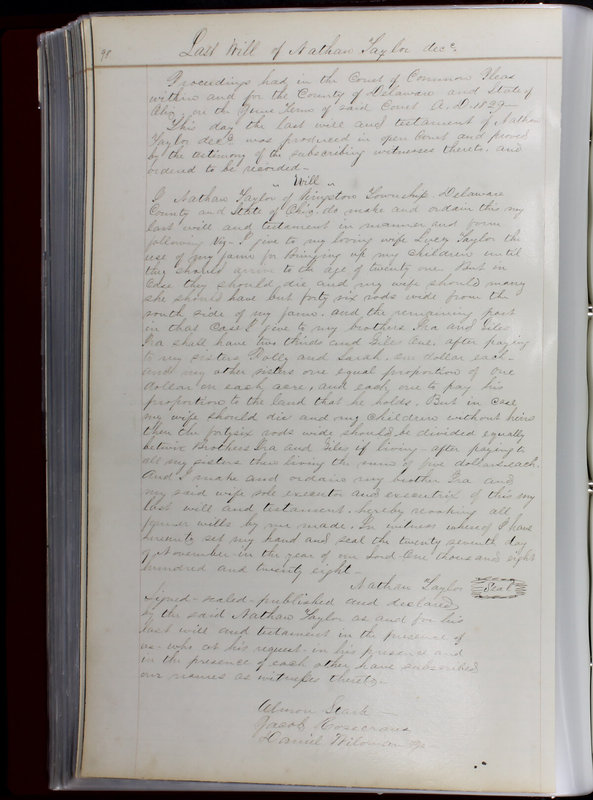 98
Last Will of Nathan Taylor decd.
Proceedings had in the Court of Common Pleas
within and for the County of Delaware and State of
Ohio, on the June Term of said Court A.D. 1829—
This day the last will and testament of Nathan
Taylor decd. was produced in open Court and proved
by the testimony of the subscribing witnesses thereto, and
ordered to be recorded—
" Will "
I Nathan Taylor of Kingston Township Delaware
County and State of Ohio do make and ordain this my
last will and testament in manner and form
following viz— I give to my loving wife Lucy Taylor the
use of my farm for bringing up my children until
they should arrive to the age of twenty one. But in
Case they should die and my wife should marry
she should have but forty six rods wide from the
south side of my farm. and the remaining part
in that Case I give to my brothers Ira and Giles
Ira shall have two thirds and Giles one, after paying
to my sisters Polly and Sarah. one dollar each—
and my other sisters one equal proportion of one
dollar on each acre, and each one to pay his
proportion to the land that he holds. But in case
my wife should die and my children without heirs
then the fortysix rods wide should be divided equally
betwix Brothers Ira and Giles if living— after paying to
all my sisters then living the sum of five dollars each.
And I make and ordain my brother Ira and
my said wife sole executor and executrix of this my
last will and testament— hereby revoking all
former wills by me made. In witness whereof I have
hereunto set my hand and seal the twenty seventh day
of November in the year of our Lord One thousand eight
hundred and twenty eight—
Nathan Taylor Seal
Signed— sealed— published and declared
by the said Nathan Taylor as and for his
last will and testament in the presence of
us— who at his request— in his presence and
in the presence of each other, have subscribed
our names as witnesses thereto—
Almon Stark—
Jacob Rosecrans
Daniel